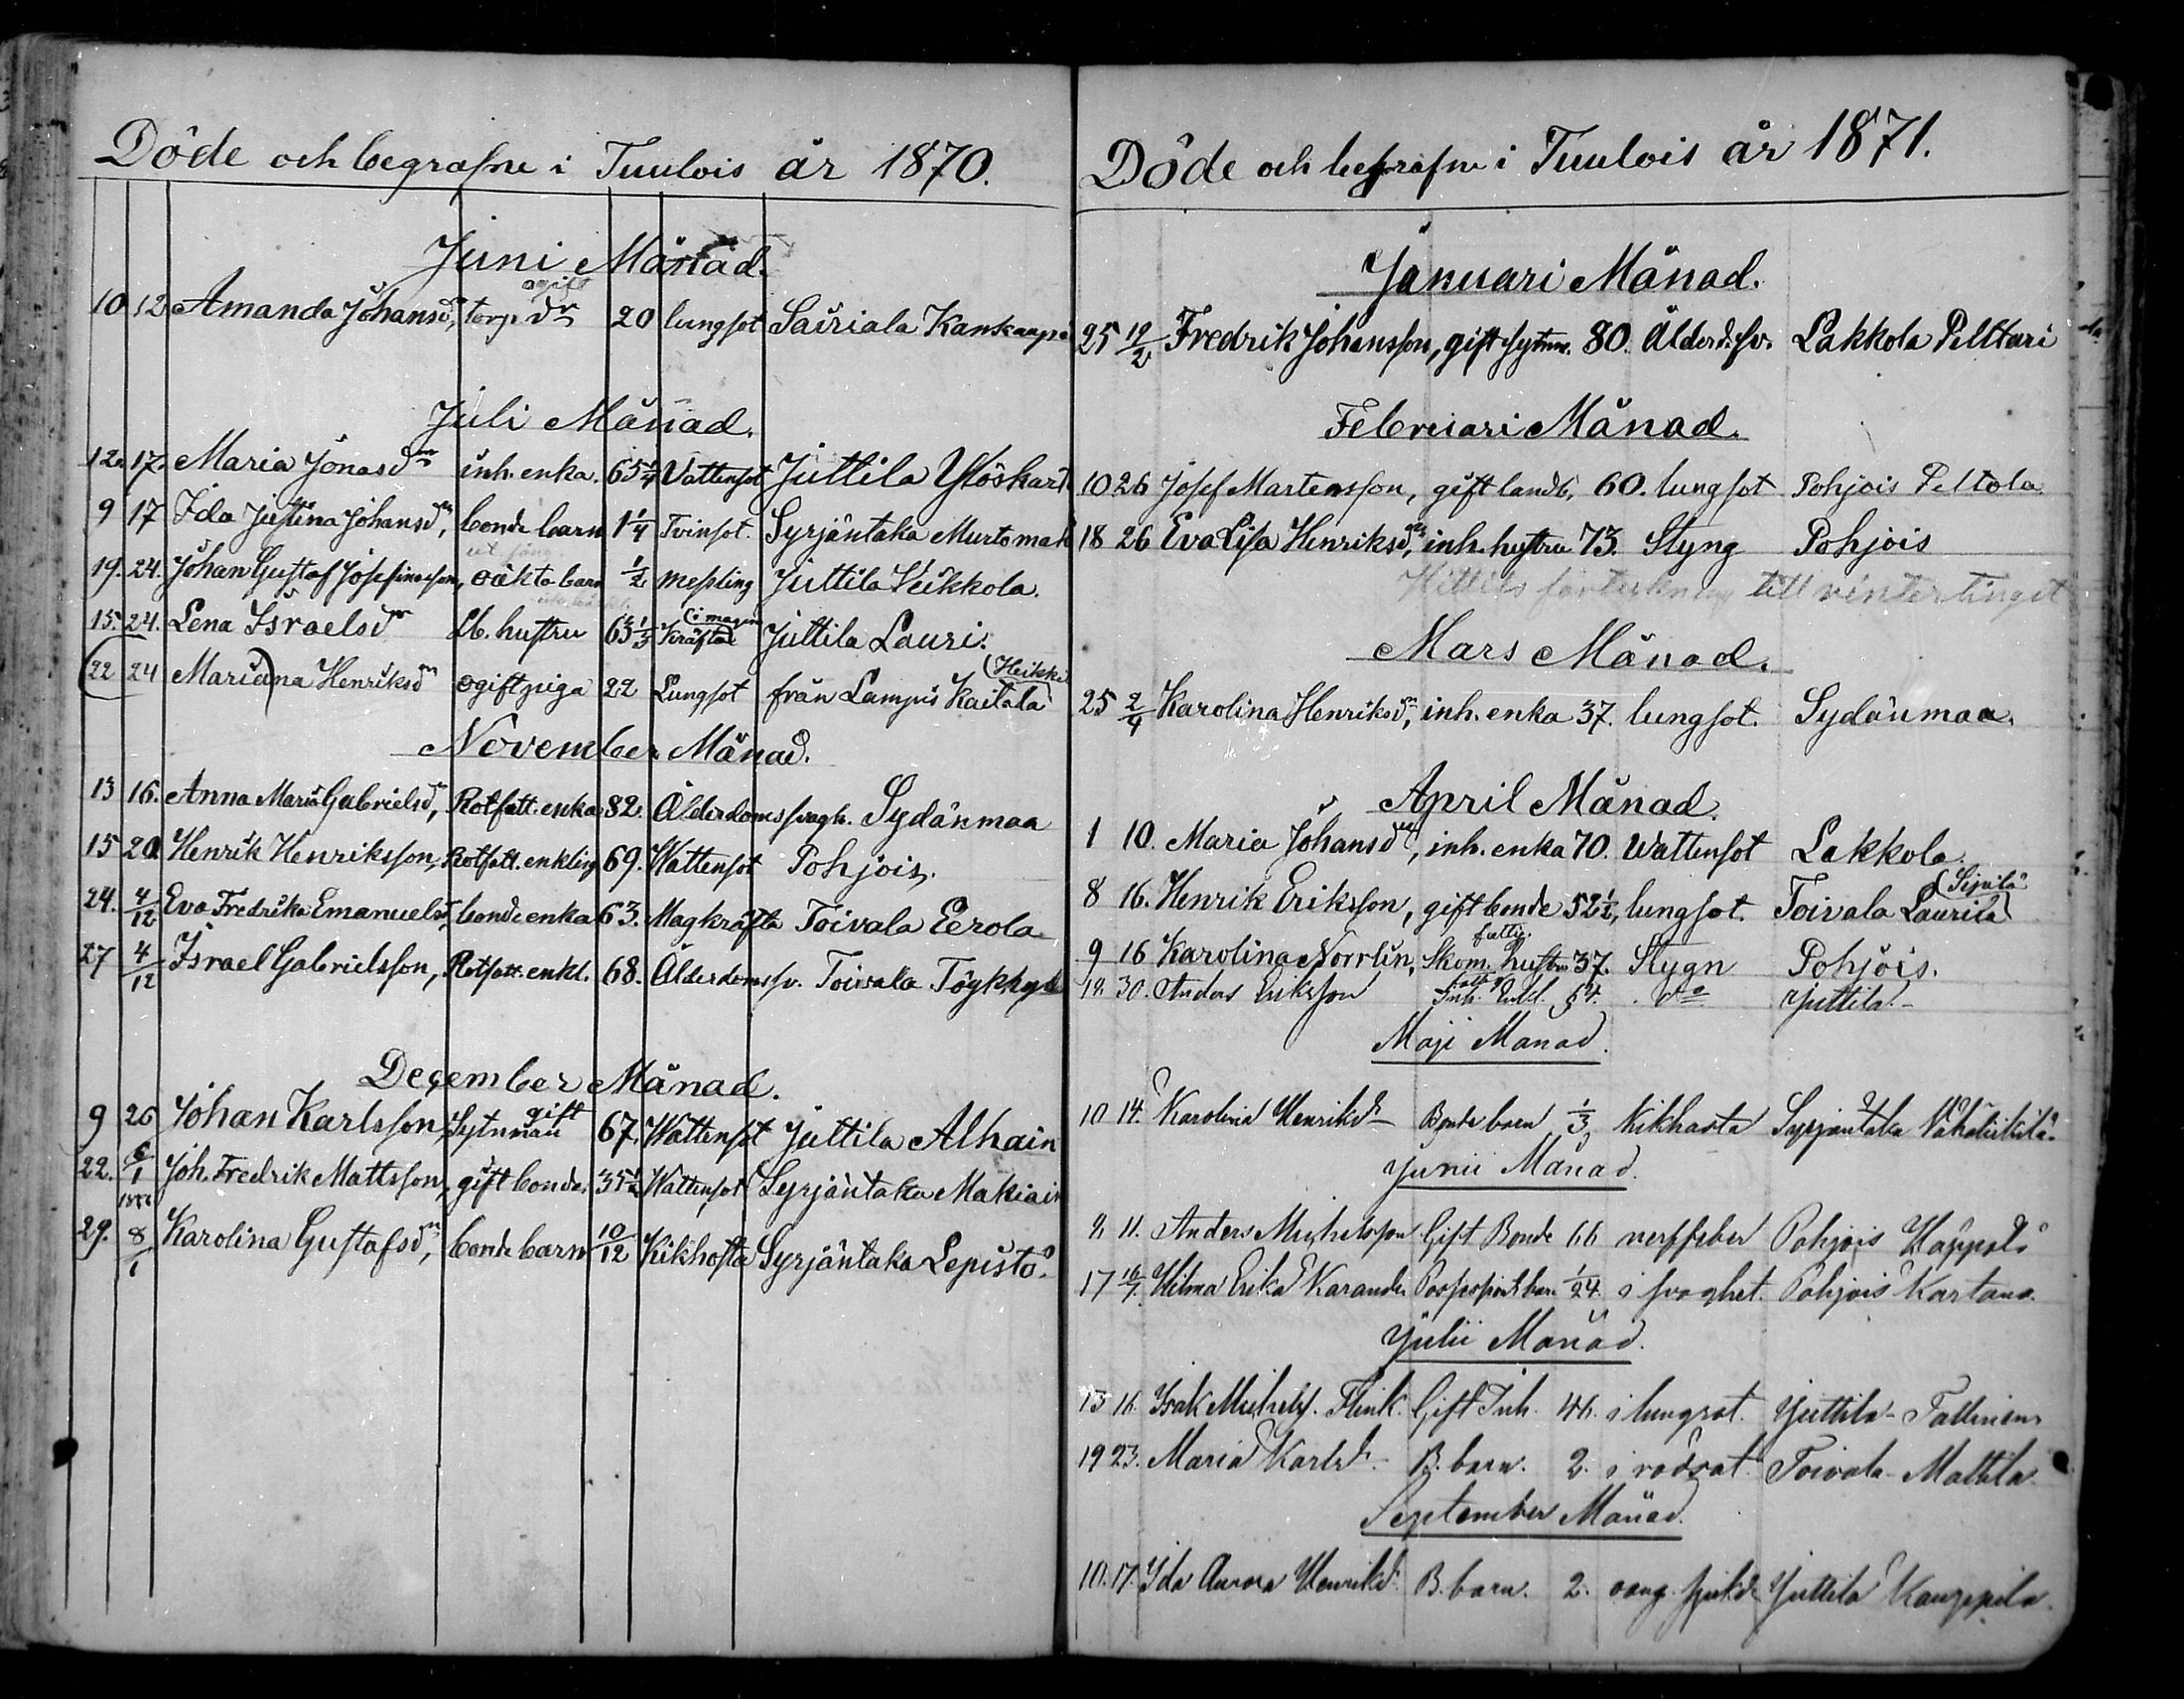 Döde och begrafne i Tuulois år 1870.
Juni Månad.
ogift
10 12 Amanda Johansdr, torp. dr 20 lungsot Sairiala Kankaanpä
Juli Månad.
12. 17. Maria Jonasdr inh. enka. 65 1/4 Vattensot Juttila Yloskart
9 17 Ida Justina Johansdr, bonde barn 1 1/4 Tvinsot. Syrjäntaka Murtomäk
19. 24. Johan Gustaf Josefinasson, oäkta barn 1/2 messling Juttila Seikkola.
(i magen
15. 24. Lena Israelsdr Lb. hustru 63 1/3 Kräftad Juttila Lauri.
(Heikki
22 24 Mariana Henriksdr ogift piga 22 Lungsot från Lampis Kaitala
November Månad.
13 16. Anna Maria Gabrielsdr, Rotfatt. enka 82. Ålderdomssvagh. Sydänmaa
15 20 Henrik Henriksson, Rotfatt. enkling 69. Wattensot Pohjois.
24. 4/12 Eva Fredrika Emanuelsdr, bonde enka 63. Magkräfta Toivala Eerola
27 4/12 Israel Gabrielsson, Rotfatt. enkl. 68. Ålderdomssv. Toivala
December Månad.
gift
9 26 Johan Karlsson, Sytnman 67. Wattensot Juttila Alhain
22. 6/1 Joh. Fredrik Mattsson, gift bonde. 35 1/2 Wattensot Syrjäntaka Makiain
1871
29. 8/1 Karolina Gustafsdr, bonde barn 10/12 Kikhosta Syrjäntaka Lepistö.
Döde och begrafne i Tuulois år 1871.
Januari Månad.
25 12/2 Fredrik Johansson, gift sytnm. 80. Ålderd.sv. Lakkola Pelttari
Februari Månad.
10 26 Josef Martensson, gift landb. 60. lungsot Pohjois Peltola
18 26 Eva Lisa Henriksdr, inh. hustru 73. Styng Pohjois
Hittils förteckning till vintertinget
Mars Månad.
25 2/4 Karolina Henriksdr, inh. enka 37. lungsot. Sydänmaa.
April Månad.
1 10. Maria Johansdr, inh. enka 70. Wattensot Lakkola
8 16. Henrik Eriksson, gift bonde 52 1/2, lungsot. Toivala Laurila
fattig.
9 16 Karolina Norrlin, Skom. hustru 37. Stygn Pohjois.
12. 30. Anders Eriksson Inh. Enkl. 54. do Juttila.
Maji Månad.
10 14. Karolina Henriksdr Bonde barn 1/3 Kikhosta Syrjäntaka
Junii Månad.
2. 11. Anders Michelsson Gift Bonde 66 nervfeber Pohjois Käppälä
17 16/7. Hilma Erika Karander barn 1/24. i svaghet. Pohjois Kartano.
Julii Månad.
13 16. Isak Michelss. Flink. Gift Inh. 46. i lungsot. Juttila Tallinen
19 23. Maria Karlsdr. B. barn. 2. i rödsot. Toivala Mattila
September Månad.
10. 17. Ida Aurora Henriksdr B. barn. 2. Juttila Kauppila.